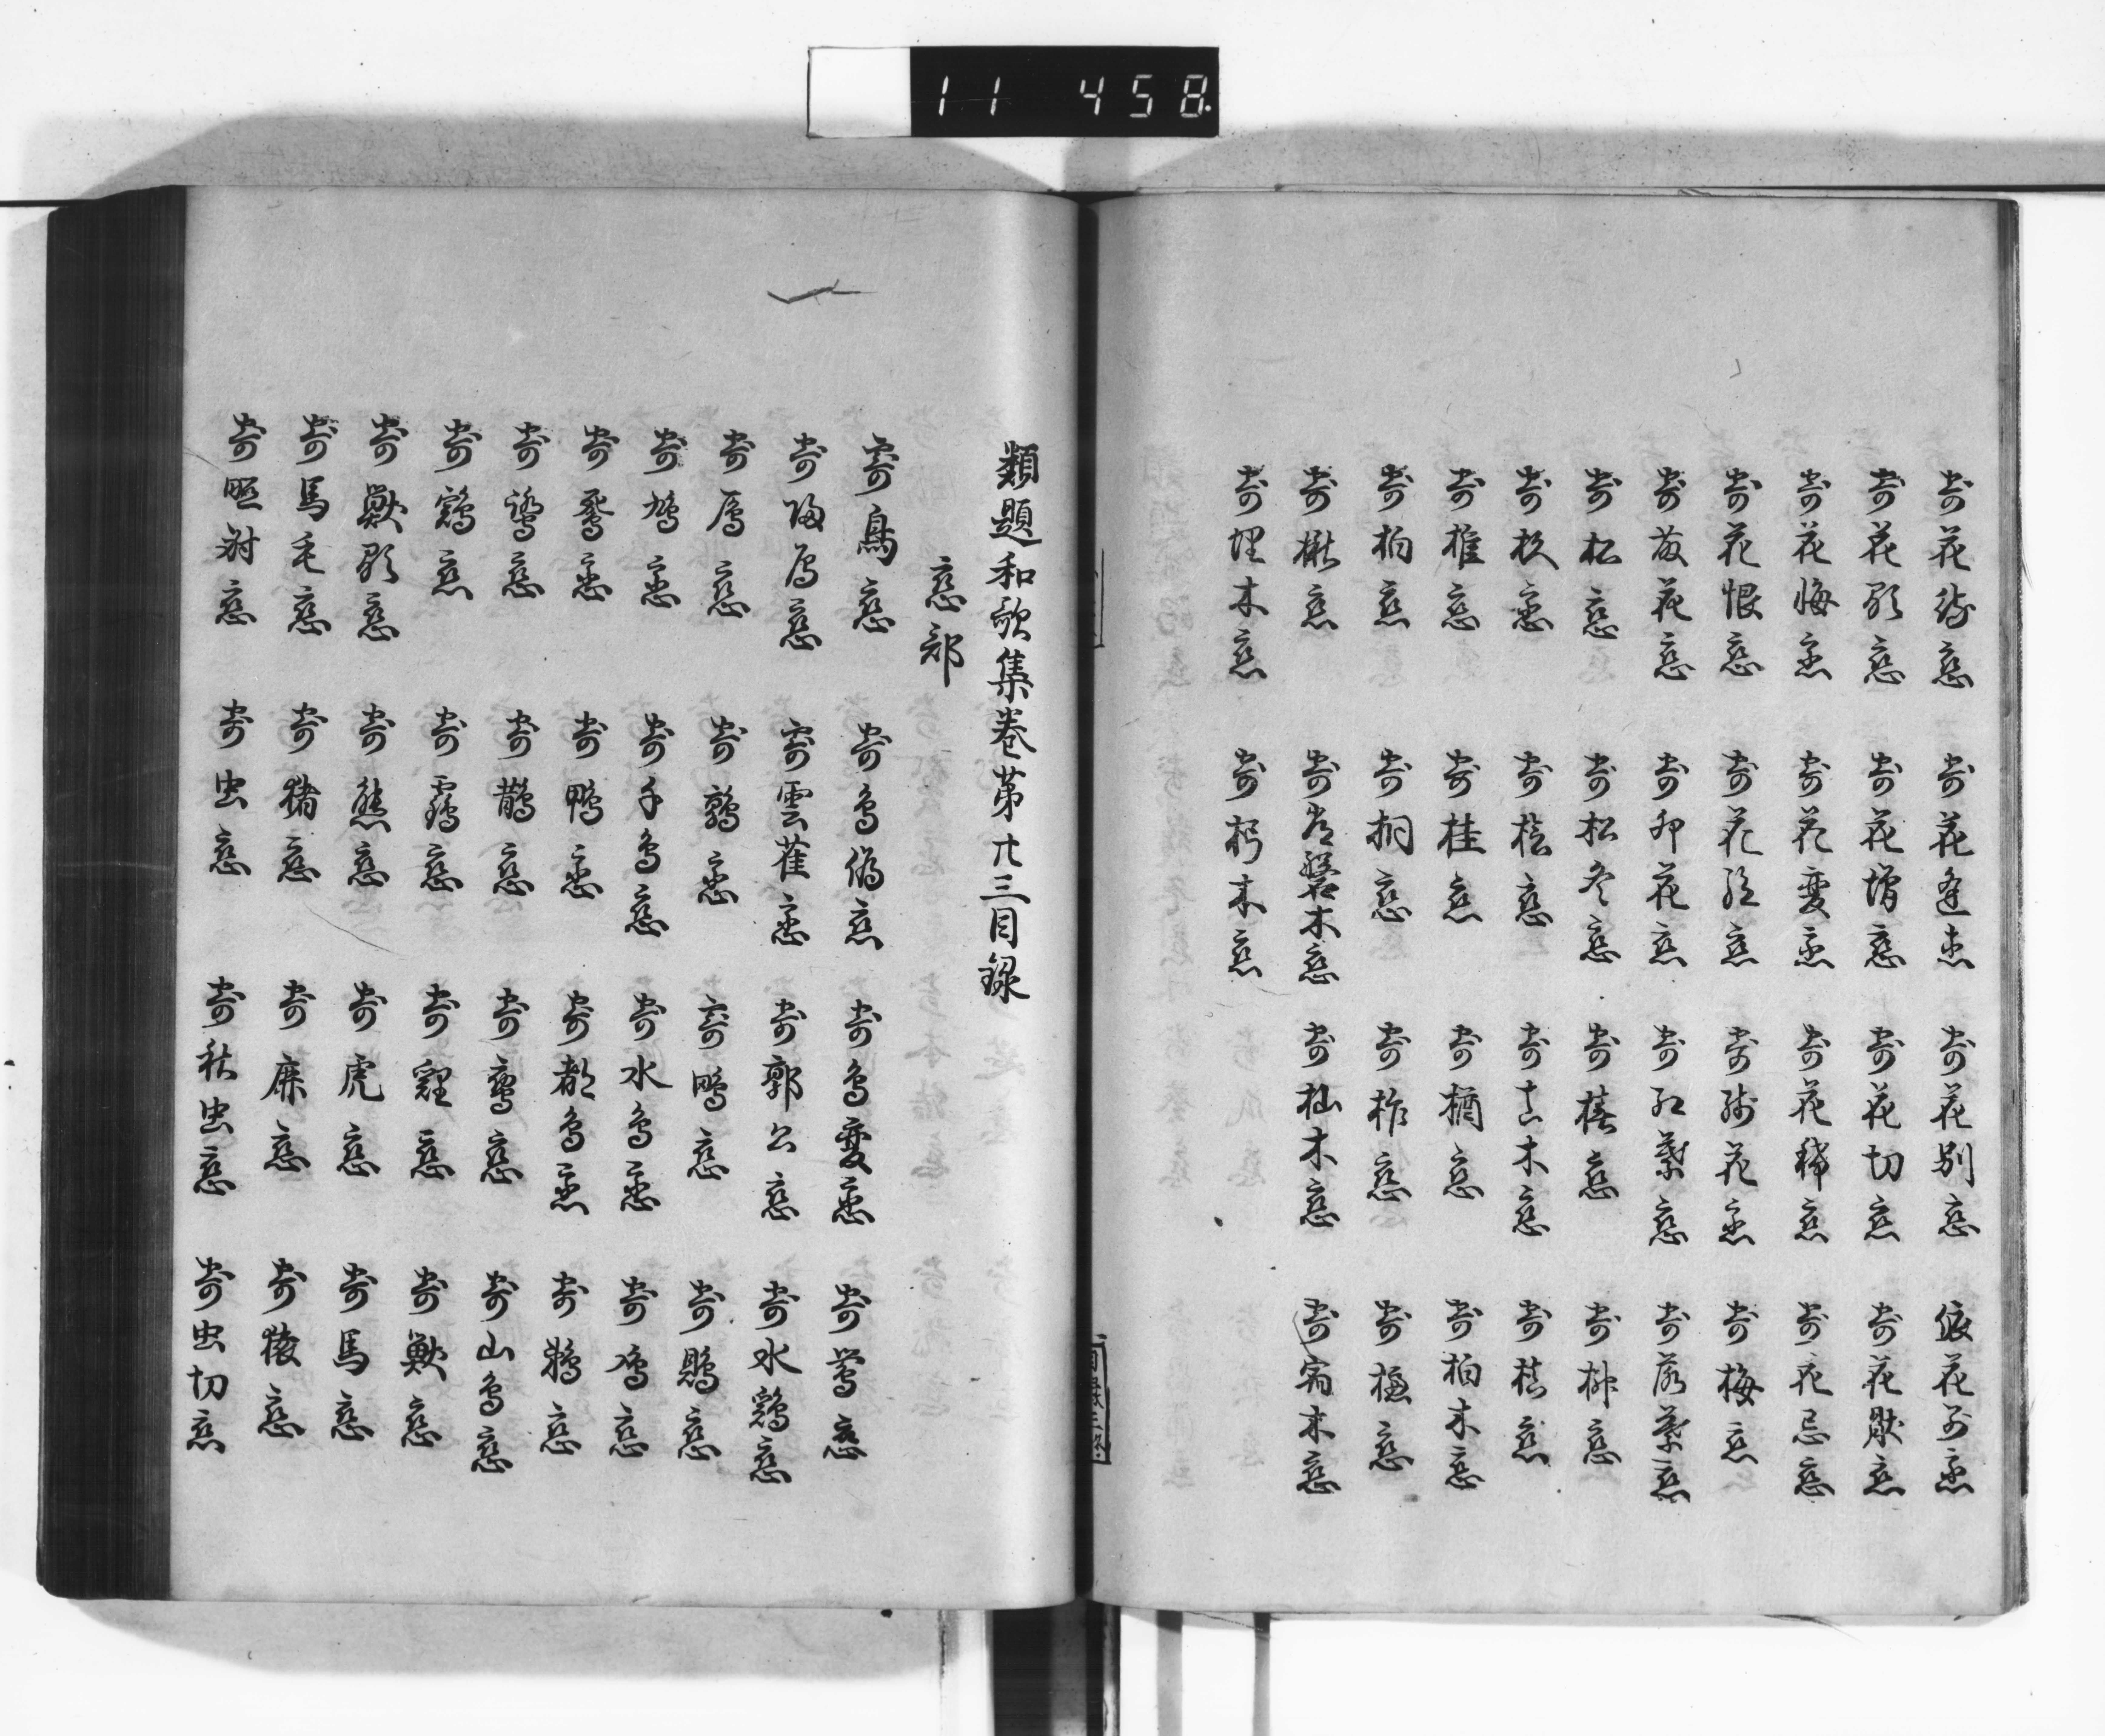 11 458.
寄花待恋 寄花逢恋 寄花別恋 依花厶恋
寄花顕恋 寄花増恋 寄花切恋 寄花厭恋
寄花悔恋 寄花変恋 寄花稀恋 寄花忌恋
寄花恨恋 寄花絶恋 寄残花恋 寄梅恋
寄菽花恋 寄卯花恋 寄紅葉恋 寄落葉恋
寄松恋 寄松冬恋 寄椿恋 寄榊恋
寄杉恋 寄桧恋 寄古木恋 寄槙恋
寄椎恋 寄桂恋 寄楢恋 寄柏木恋
寄柏恋 寄桐恋 寄柞恋 寄櫨恋
寄楸恋 寄常磐木恋 寄杣木恋 寄宿木恋
寄埋木恋 寄朽木恋
類題和歌集巻第廿三目録
恋部
寄鳥恋 寄鳥偽恋 寄鳥変恋 寄鶯恋
寄帰鴈恋 寄雲雀恋 寄郭公恋 寄水鶏恋
寄鴈恋 寄鶉恋 寄鴫恋 寄鵙恋
寄鳩恋 寄千鳥恋 寄水鳥恋 寄鳰恋
寄鴛恋 寄鴨恋 寄都鳥恋 寄鵜恋
寄鷺恋 寄鵲恋 寄鸞恋 寄山鳥恋
寄鶏恋 寄鶴恋 寄恋 寄獣恋
寄獣顕恋 寄熊恋 寄虎恋 寄馬恋
寄馬毛恋 寄猪恋 寄鹿恋 寄猿恋
寄照射恋 寄虫恋 寄秋虫恋 寄虫切恋